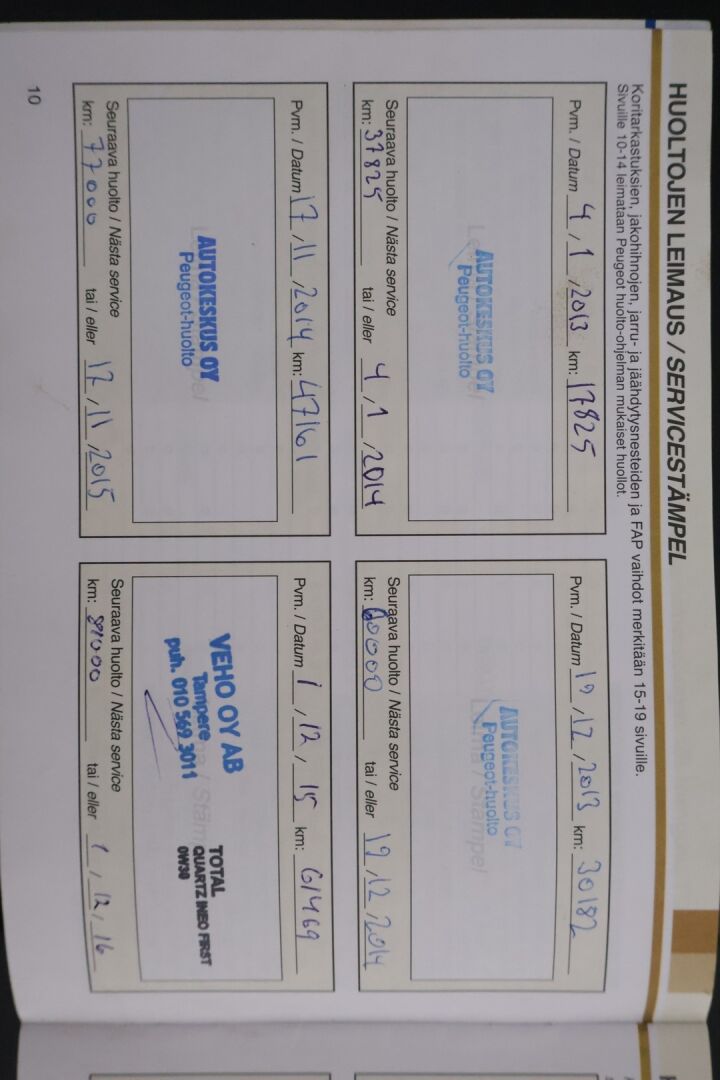 HUOLTOJEN LEIMAUS / SERVICESTÄMPEL
Koritarkastuksien, jakohihnojen, jarru- ja jäähdytysnesteiden ja FAP vaihdot merkitään 15-19 sivuille.
Sivuille 10-14 leimataan Peugeot huolto-ohjelman mukaiset huollot.
Pvm. / Datum 4 / 1 / 2013 km: 17825
AUTOKESKUS OY
Peugeot-huolto
Seuraava huolto / Nästa service
km: 37825 tai / eller 4 / 1 / 2014
Pvm. / Datum 19 / 12 / 2013 km: 30182
AUTOKESKUS OY
Peugeot-huolto
Seuraava huolto / Nästa service
km: 60000 tai / eller 19 / 12 / 2014
Pvm. / Datum 17 / 11 / 2014 km: 47161
AUTOKESKUS OY
Peugeot-huolto
Seuraava huolto / Nästa service
km: 77000 tai / eller 17 / 11 / 2015
Pvm. / Datum 1 / 12 / 15 km: 61469
VEHO OY AB
Tampere
puh. 010 569 3011
TOTAL
QUARTZ INEO FIRST
0W30
Seuraava huolto / Nästa service
km: 81000 tai / eller 1 / 12 / 16
10